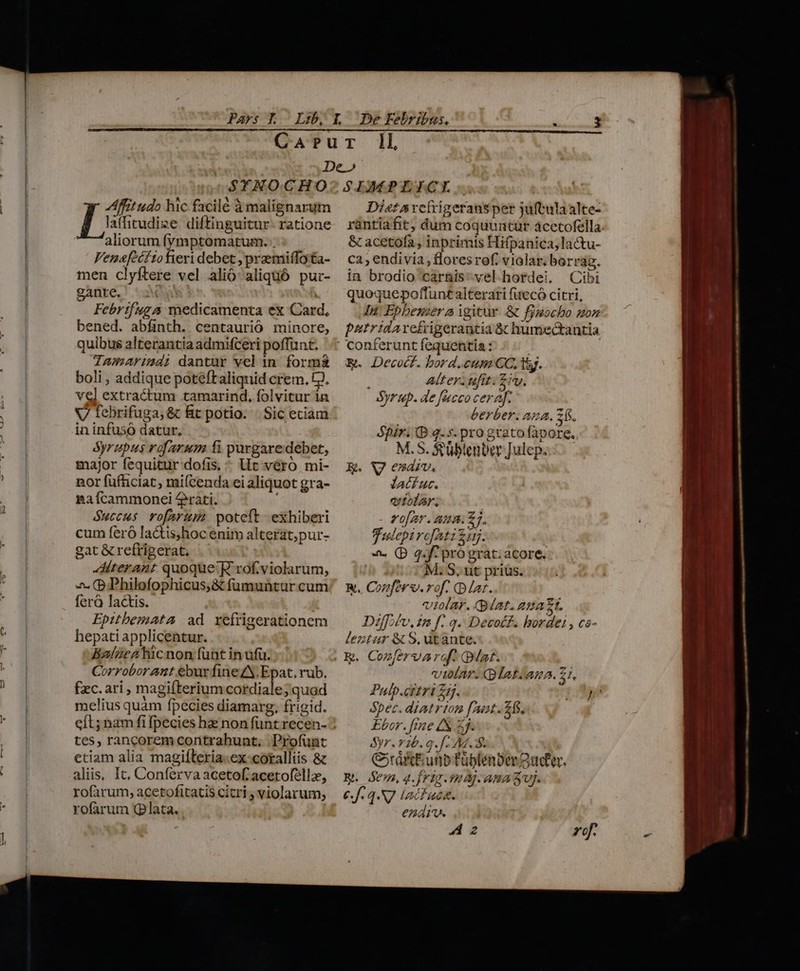 Pars I. Lib. I. De Febribus. 3
CAPUT II.
De
SYNOCHO SIMPLICI.
Affitudo hic facilè à malignarum
lassitudine distinguitur ratione
aliorum symptomatum.
Venæsectio fieri debet, præmisso ta-
men clystere vel aliò aliquò pur-
gante.
Febrifuga medicamenta ex Card,
bened. absinth. centaurio minore,
quibus alterantia admisceri possunt.
Tamarindi dantur vel in formâ
boli, addique potest aliquid crem. 🜿.
vel extractum tamarind. solvitur in
🜄 febrifuga, & fit potio. Sic etiam
in infuso datur.
Syrupus rosarum si purgare debet,
major sequitur dosis. Ut verò mi-
nor sufficiat, miscenda ei aliquot gra-
na scammonei ratì.
Succus rosarum potest exhiberi
cum serò lactis, hoc enim alterat, pur-
gat & refrigerat.
Alterant quoque ros. violarum,
Philosophicus, & sumuntur cum
serò lactis.
Epithemata ad refrigerationem
hepati applicentur.
Balnea hic non sunt in usu.
Corroborant ebur sine 🜂. Epat. rub.
fæc. ari, magisterium cordiale, quod
melius quàm species diamarg. frigid.
est; nam si species hæ non sunt recen-
tes, rancorem contrahunt. Prosunt
etiam alia magisteria ex corallis &
aliis. It. Conserva acetos. acetosellæ,
rosarum, acetositatis citri, violarum,
rosarum lata.
Diæta refrigerans per juscula alte-
rantia fit, dum coquuntur acetosella
& acetosa, inprimis Hispanica, lactu-
ca, endivia, flores ros. violar. borrag.
in brodio carnis vel hordei. Cibi
quoque possunt alterari succò citri.
In Ephemera igitur & synocho non
putrida refrigerantia & humectantia
conferunt sequentia:
℞. Decoct. hord. cum CC. ℔j.
alter. usit. ʒiv.
Syrup. de succo ceras.
berber. ana. ℥ß.
Spir. q. s. pro grato sapore.
M. S. Kühlender Julep.
℞. 🜄 endiv.
lactuc.
violar.
rosar. ana. ℥j.
Julepi rosati ℥iij.
q. s. pro grat. acore.
M. S. ut prius.
℞. Conserv. ros. lat.
violar. lat. ana ℥ß.
Dissolv. in s. q. Decoct. hordei, co-
lentur & S. ut ante.
℞. Conserva ros. lat.
violar. lat. ana. ℥i.
Pulp. citri ℥ij.
Spec. diatrion sant. ℥ß.
Ebor. sine 🜂 ℥j.
Syr. rib. q. s. M. S.
Stärck- und kühlender Zucker.
℞. Sem. 4. frig. maj. ana ʒvj.
c. s. q. 🜄 lactucæ.
endiv.
A 2 ros.